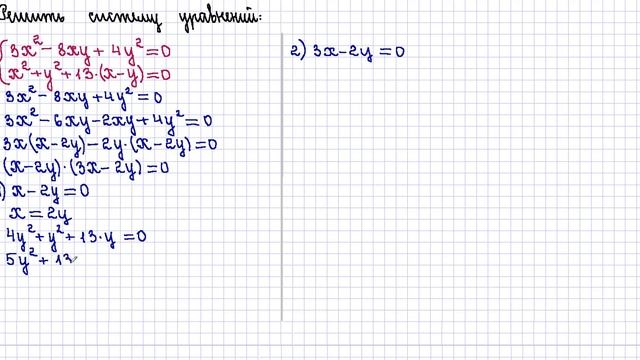 Решить систему уравнений:
3x² - 8xy + 4y² = 0
x² + y² + 13·(x-y) = 0
3x² - 8xy + 4y² = 0
3x² - 6xy - 2xy + 4y² = 0
3x(x-2y) - 2y·(x-2y) = 0
(x-2y)·(3x-2y) = 0
) x - 2y = 0
x = 2y
4y² + y² + 13·y = 0
5y² + 13
2) 3x - 2y = 0